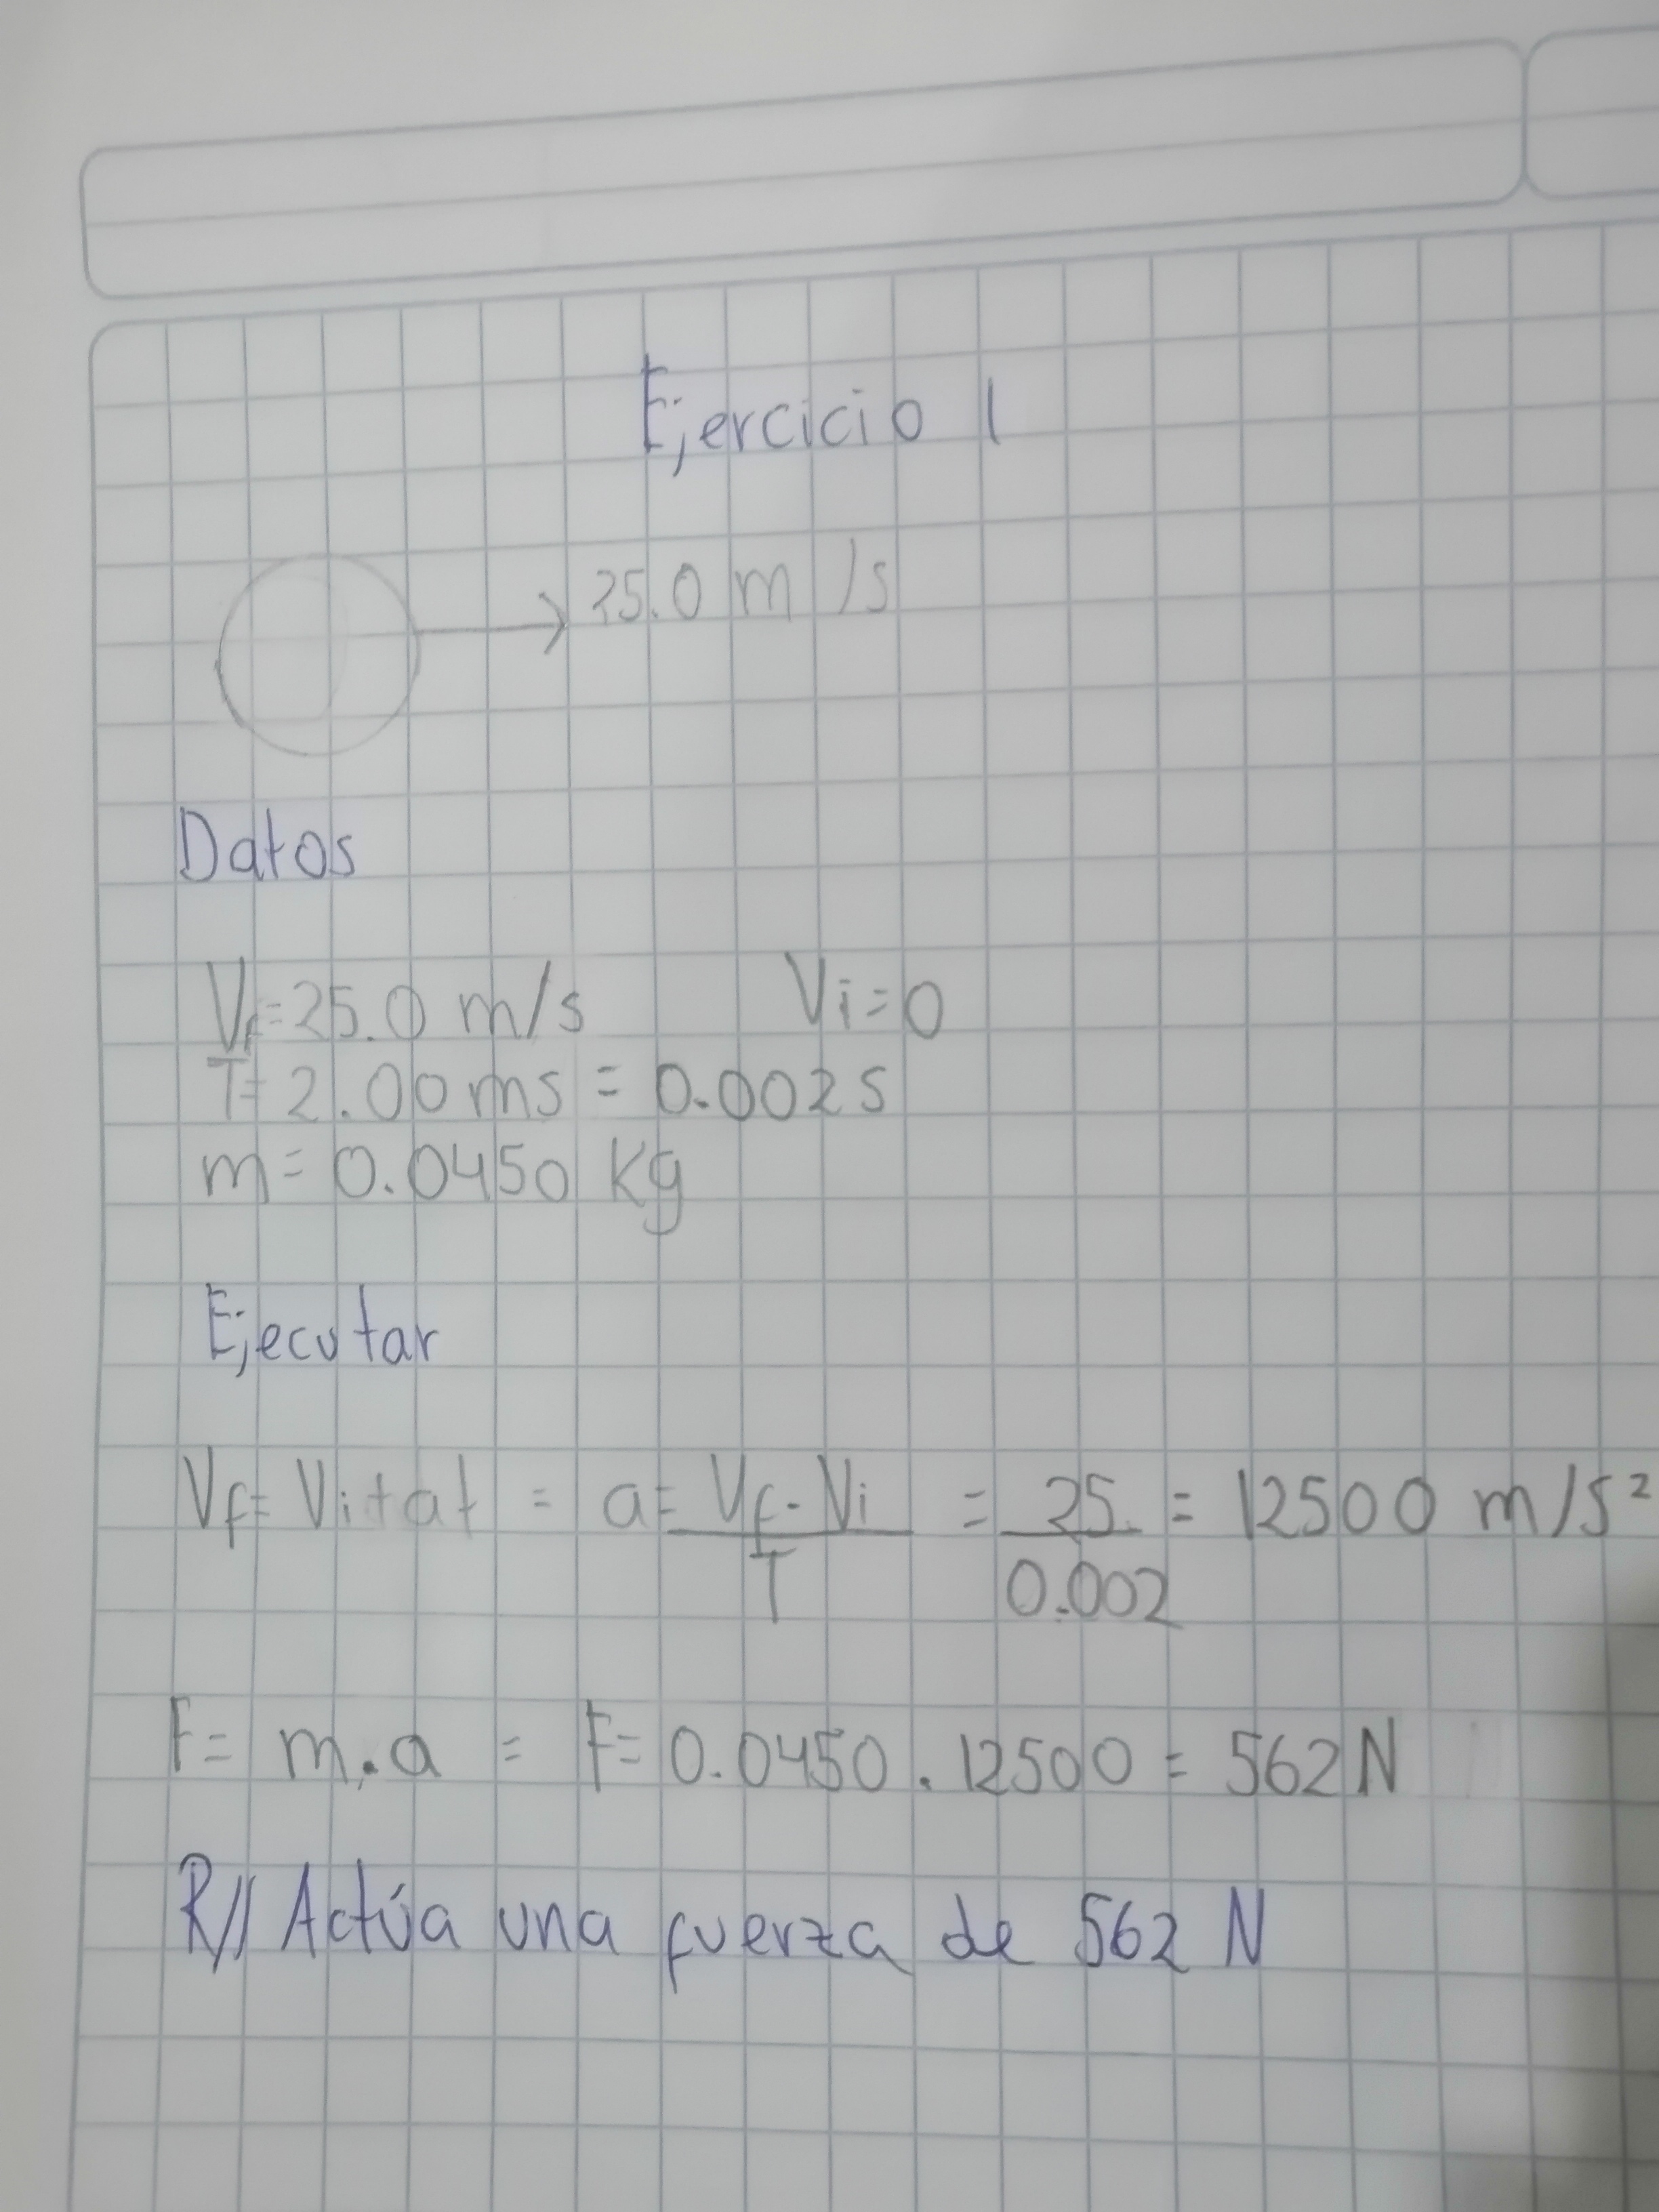 Ejercicio 1
25.0 m/s
Datos
Vf=25.0 m/s Vi=0
T=2.00 ms = 0.002 s
m=0.0450 Kg
Ejecutar
Vf= Vi+at = a= Vf-Vi / T = 25. / 0.002 = 12500 m/s²
F= m.a = F= 0.0450 . 12500 = 562 N
R// Actúa una fuerza de 562 N